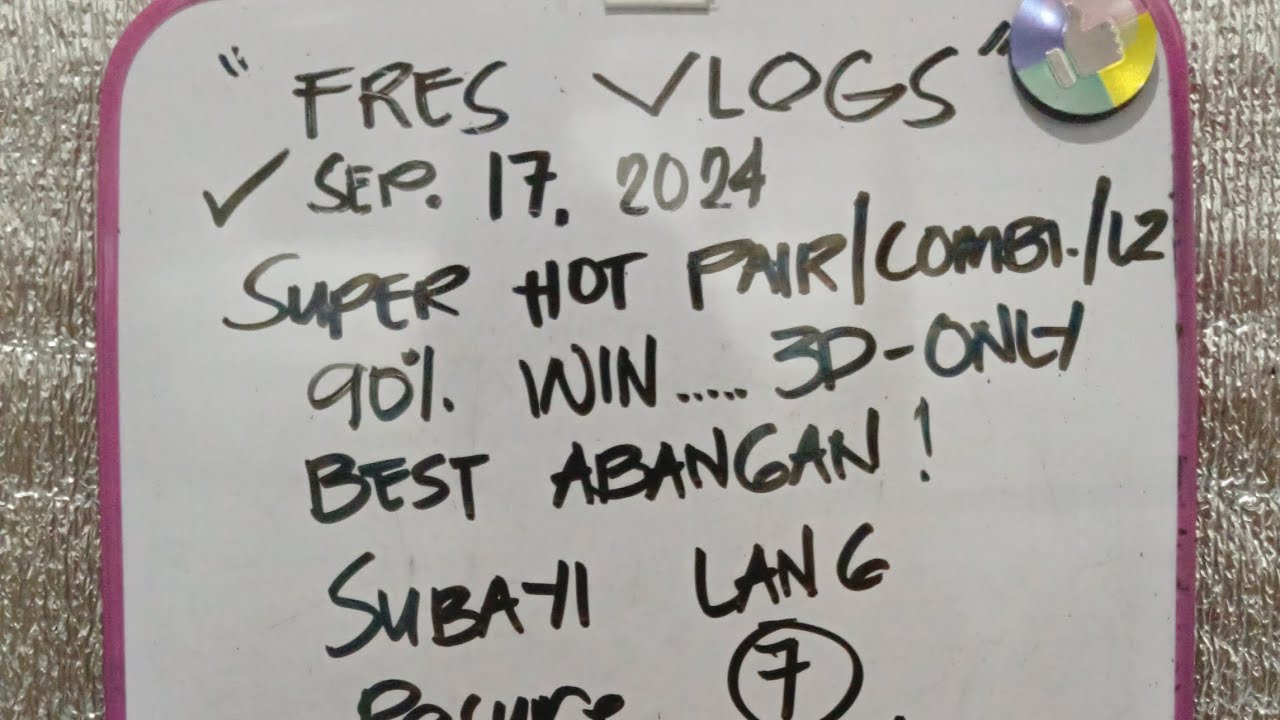 "FRES VLOGS"
✓ SEP. 17. 2024
SUPER HOT PAIR/COMBI./L2
90% WIN..... 3D-ONLY
BEST ABANGAN!
SUBAYI LANG
7